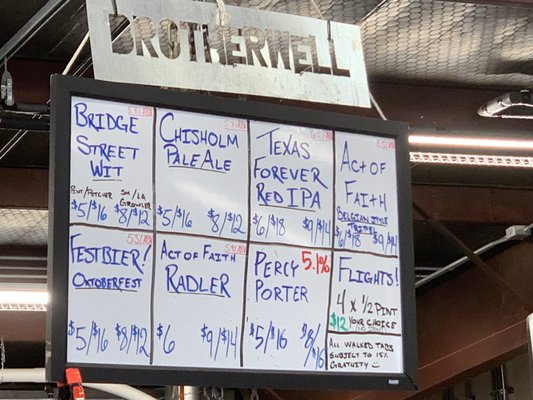 BROTHERWELL
BRIDGE
STREET
WIT
PINT/PITCHER
SM/LG
GROWLER
$5/$16 $8/$12
CHISHOLM
PALE ALE
$5/$16 $8/$12
TEXAS
FOREVER
RED IPA
$6/$18 $9/$14
ACT OF
FAITH
BELGIAN STYLE
TRIPEL
$6/$18 $9/$14
FESTBIER!
OKTOBERFEST
$5/$16 $8/$12
ACT OF FAITH
RADLER
$6 $9/$14
PERCY 5.1%
PORTER
$5/$16 $8/$16
FLIGHTS!
4 x 1/2 PINT
$12 YOUR CHOICE
ALL WALKED TABS
SUBJECT TO 15%
GRATUITY